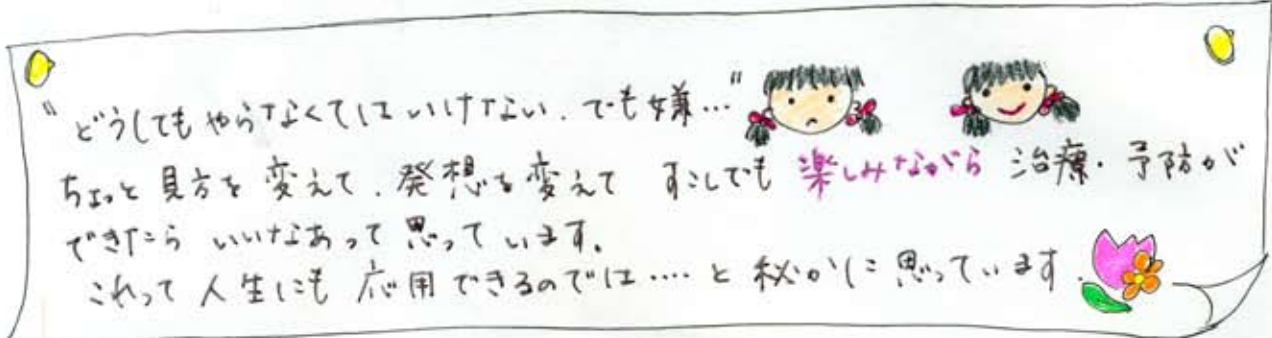 "どうしてもやらなくてはいけない、でも嫌…"
ちょっと見方を変えて、発想を変えて すこしでも 楽しみながら 治療・予防が
できたら いいなあって 思っています。
これって 人生にも 応用できるのでは‥‥と 秘かに 思っています。